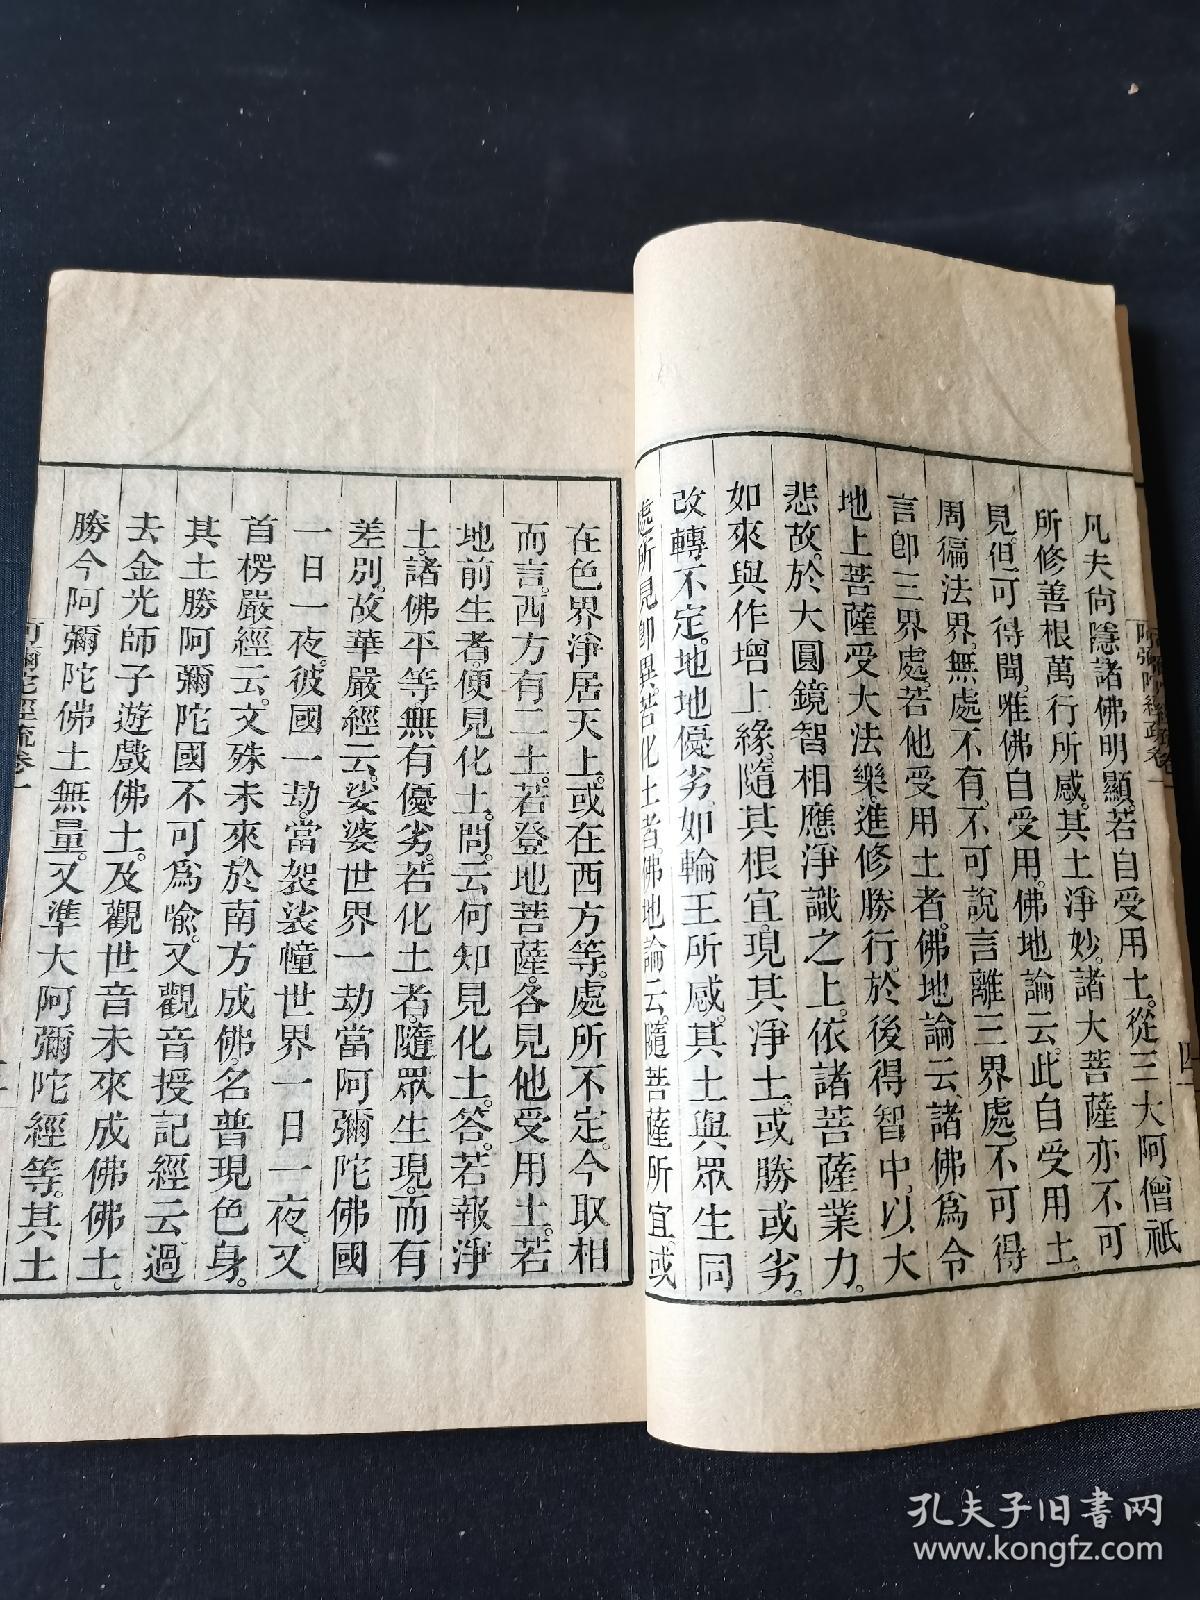 凡夫尚隱諸佛明顯。若自受用土。從三大阿僧祇
所修善根萬行所感。其土淨妙。諸大菩薩亦不可
見。但可得聞。唯佛自受用。佛地論云。此自受用土。
周徧法界。無處不有。不可說言離三界處。不可得
言卽三界處。若他受用土者。佛地論云。諸佛爲令
地上菩薩受大法樂。進修勝行。於後得智中。以大
悲故。於大圓鏡智相應淨識之上。依諸菩薩業力。
如來與作增上緣。隨其根宜。現其淨土。或勝或劣。
改轉不定。地地優劣。如輪王所感。其土與眾生同
處所見卽異。若化土者。佛地論云。隨菩薩所宜。或
阿彌陀經疏卷一
四
在色界淨居天上。或在西方等。處所不定。今取相
而言。西方有二土。若登地菩薩。各見他受用土。若
地前生者。便見化土。問。云何知見化土。答。若報淨
土。諸佛平等。無有優劣。若化土者。隨眾生現。而有
差別。故華嚴經云。娑婆世界一劫當阿彌陀佛國
一日一夜。彼國一劫。當袈裟幢世界一日一夜。又
首楞嚴經云。文殊未來。於南方成佛。名普現色身。
其土勝阿彌陀國不可爲喻。又觀音授記經云。過
去金光師子遊戲佛土。及觀世音未來成佛佛土。
勝今阿彌陀佛土無量。又準大阿彌陀經等。其土
阿彌陀經疏卷一
孔夫子旧书网
www.kongfz.com